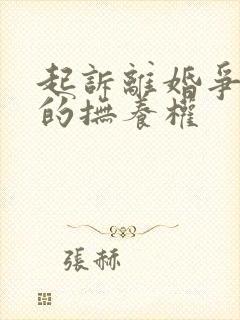 起訴離婚爭
的撫養權
張赫